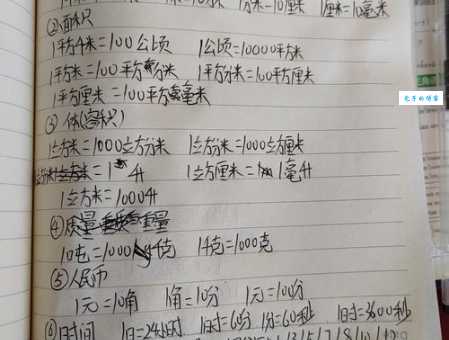 1分米=10厘米 1厘米=10毫米
②面积
1平方千米=100公顷 1公顷=10000平方米
1平方米=100平方分米 1平方分米=100平方厘米
1平方厘米=100平方毫米
③体(容积)
1立方米=1000立方分米 1立方分米=1000立方厘米
1立方分米=1升 1立方厘米=1毫升
1立方米=1000升
④质量 重量
10吨=1000千克 1千克=1000克
⑤人民币
1元=10角 1角=10分 1元=100分
⑥时间 1日=24小时 1时=60分 1分=60秒 1时=3600秒